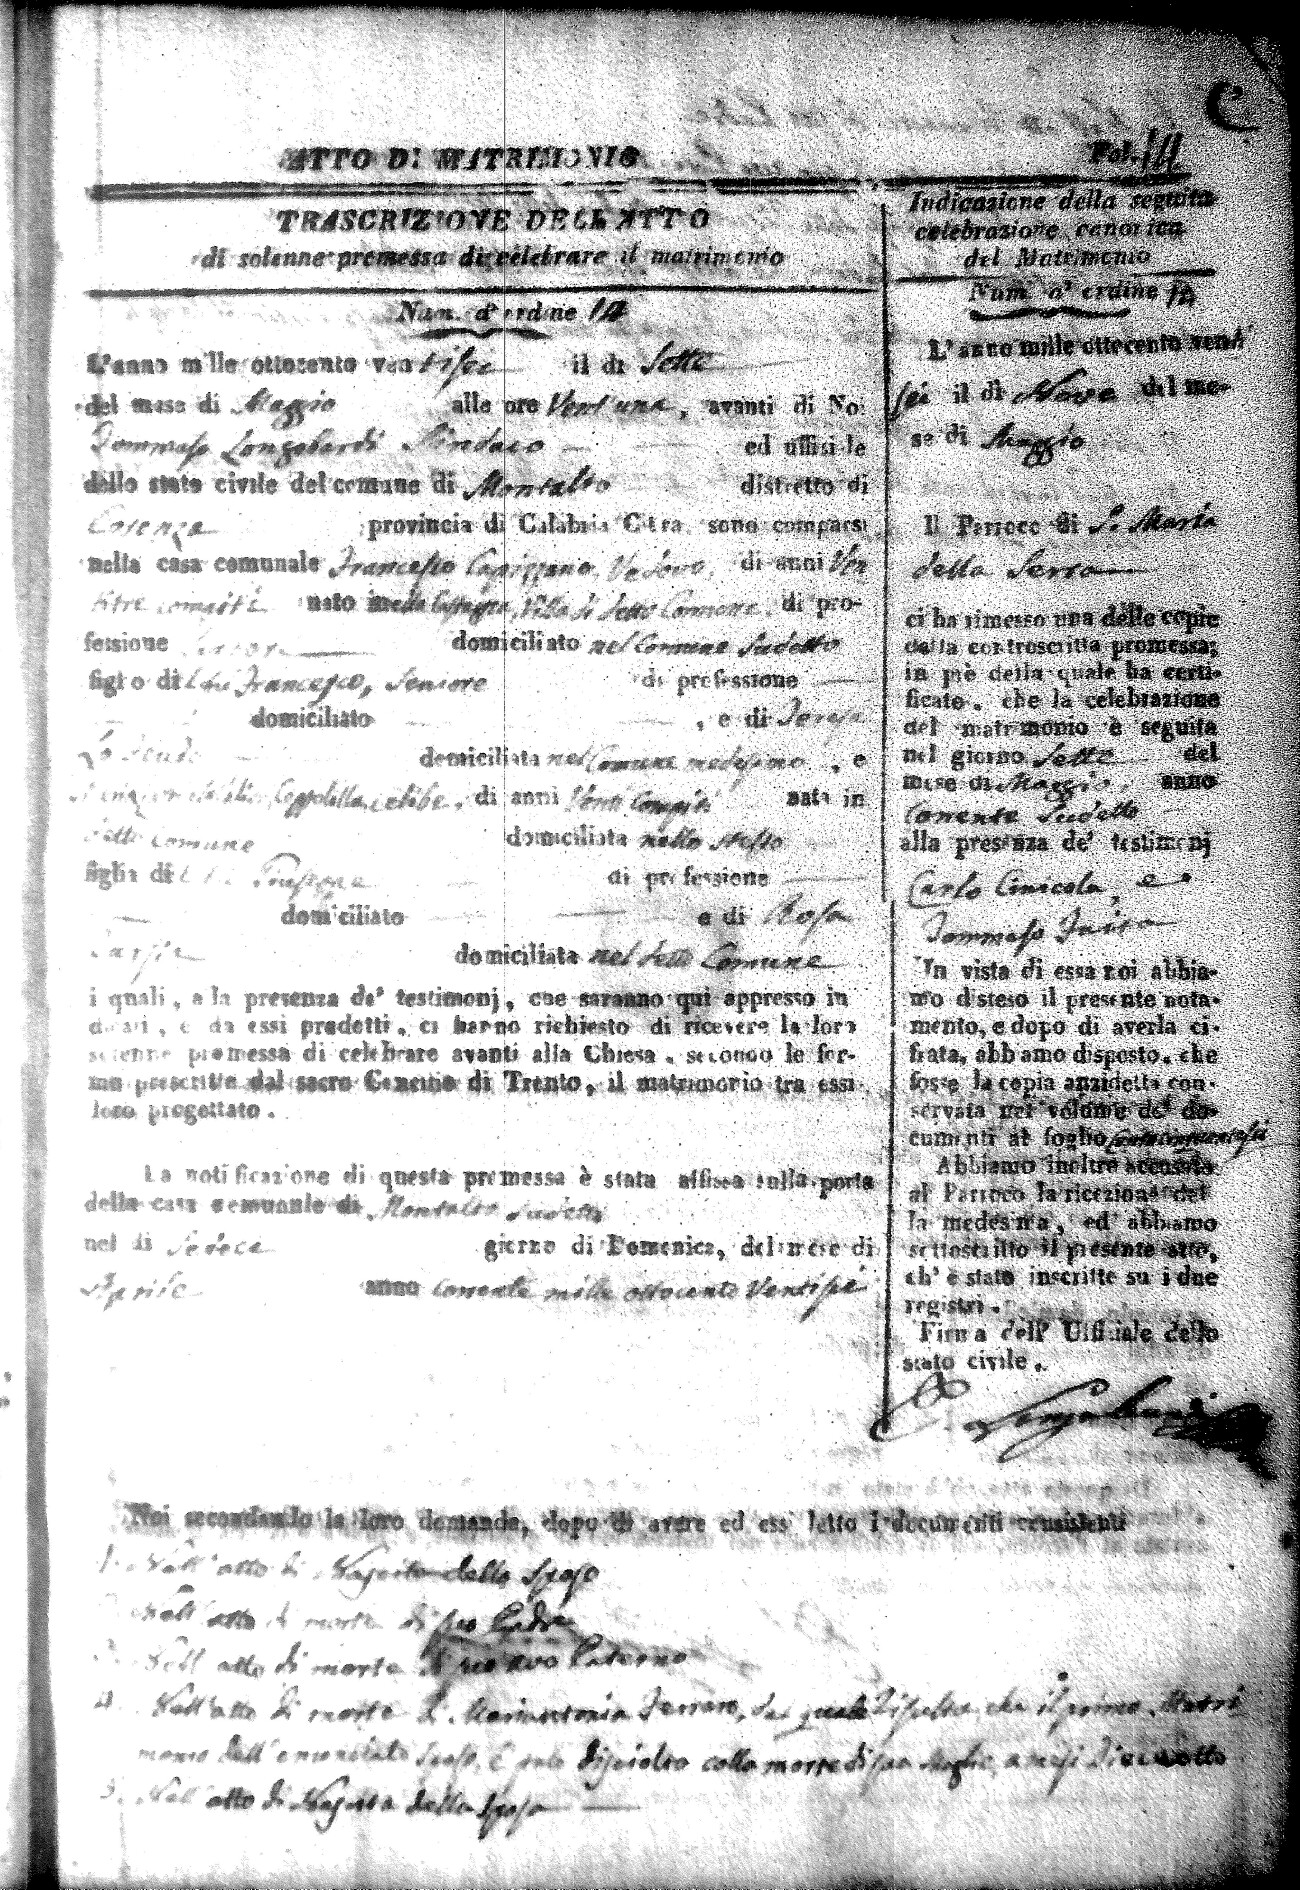 ATTO DI MATRIMONIO
Fol. 14
TRASCRIZIONE DELL ATTO
di solenne promessa di celebrare il matrimonio
Num. d'ordine 14
L'anno mille ottocento ventisei il di Sette
del mese di Maggio alle ore Ventuna, avanti di Noi
Tommaso Longobardi Sindaco ed uffiziale
dello stato civile del comune di Montalto distretto di
Cosenza provincia di Calabria Citra, sono comparsi
nella casa comunale Francesco Vedovo, di anni Ven
titre compiti nato in Villa di detto Comune di pro-
fessione domiciliato nel Comune Sudetto
figlio di Francesco, Seniore di professione
domiciliato , e di Teresa
domiciliata nel Comune medesimo , e
celibe, di anni Venti Compiti nata in
detto Comune domiciliata nello stesso
figlia di di professione
domiciliato e di Rosa
domiciliata nel detto Comune
i quali, a la presenza de' testimonj, che saranno qui appresso in
dicati, e da essi prodotti, ci hanno richiesto di ricevere la loro
solenne promessa di celebrare avanti alla Chiesa, secondo le for-
me prescritte dal sacro Concilio di Trento, il matrimonio tra essi
loro progettato.
La notificazione di questa promessa è stata affissa sulla porta
della casa comunale di Montalto sudetto
nel di Sedeci giorno di Domenica, del mese di
Aprile anno corrente mille ottocento Ventisei
Indicazione della seguita
celebrazione canonica
del Matrimonio
Num. d'ordine 14
L'anno mille ottocento venti
sei il di Nove del me-
se di Maggio
Il Parroco di S. Maria
della Serra
ci ha rimesso una delle copie
della controscritta promessa;
in piè della quale ha certi-
ficato, che la celebrazione
del matrimonio è seguita
nel giorno Sette del
mese di Maggio, anno
Corrente Sudetto
alla presenza de' testimonj
Carlo Cinicola, e
Tommaso
In vista di essa noi abbia-
mo disteso il presente nota-
mento, e dopo di averla ci-
frata, abbiamo disposto, che
fosse la copia anzidetta con-
servata nel volume de' do-
cumenti al foglio
Abbiamo inoltre accusata
al Parroco la ricezione del
la medesma, ed abbiamo
sottoscritto il presente atto,
ch' è stato inscritto su i due
registri.
Firma dell' Uffiziale dello
stato civile.
Longobardi
Noi secondando la loro domanda, dopo di avere ad essi letto i documenti consistenti
1. Nell'atto di Nascita dello Sposo
2. Nell'atto di morte di suo Padre
3. Nell'atto di morte di suo avo Paterno
4. Nell'atto di morte di Mariantonia Ferraro, dal quale risulta, che il primo Matri
monio dell'enunciato Sposo, è stato disciolto colla morte di sua Moglie, a mesi dieciotto
5. Nell'atto di Nascita della Sposa